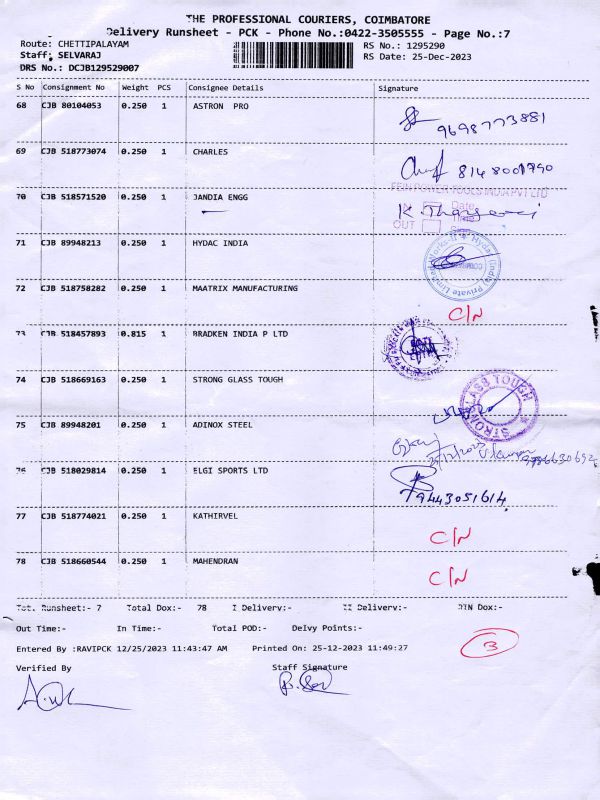 THE PROFESSIONAL COURIERS, COIMBATORE
Delivery Runsheet - PCK - Phone No.:0422-3505555 - Page No.:7
Route: CHETTIPALAYAM RS No.: 1295290
Staff: SELVARAJ RS Date: 25-Dec-2023
DRS No.: DCJB129529007
S No Consignment No Weight PCS Consignee Details Signature
68 CJB 80104053 0.250 1 ASTRON PRO
9698773881
69 CJB 518773074 0.250 1 CHARLES
8148001790
FEIN POWER TOOLS INDIA PVT LTD
70 CJB 518571520 0.250 1 JANDIA ENGG
IN Date
Time
OUT
71 CJB 89948213 0.250 1 HYDAC INDIA
Hydac (India) Private Limited Works-II
72 CJB 518758282 0.250 1 MAATRIX MANUFACTURING
C/N
73 CJB 518457893 0.815 1 BRADKEN INDIA P LTD
74 CJB 518669163 0.250 1 STRONG GLASS TOUGH
STRONG GLASS TOUGH
75 CJB 89948201 0.250 1 ADINOX STEEL
9786630692
76 CJB 518029814 0.250 1 ELGI SPORTS LTD
9443051614
77 CJB 518774021 0.250 1 KATHIRVEL
C/N
78 CJB 518660544 0.250 1 MAHENDRAN
C/N
Tot. Runsheet:- 7 Total Dox:- 78 I Delivery:- II Delivery:- RTN Dox:-
Out Time:- In Time:- Total POD:- Delvy Points:-
Entered By :RAVIPCK 12/25/2023 11:43:47 AM Printed On: 25-12-2023 11:49:27
3
Verified By Staff Signature